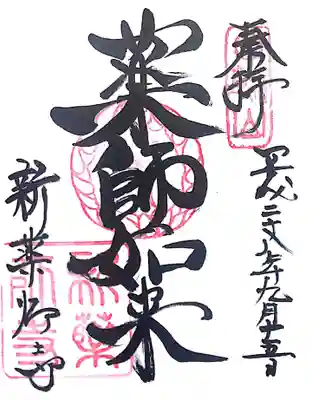 奉拝
平成二十八年九月十五日
薬師如来
新薬師寺